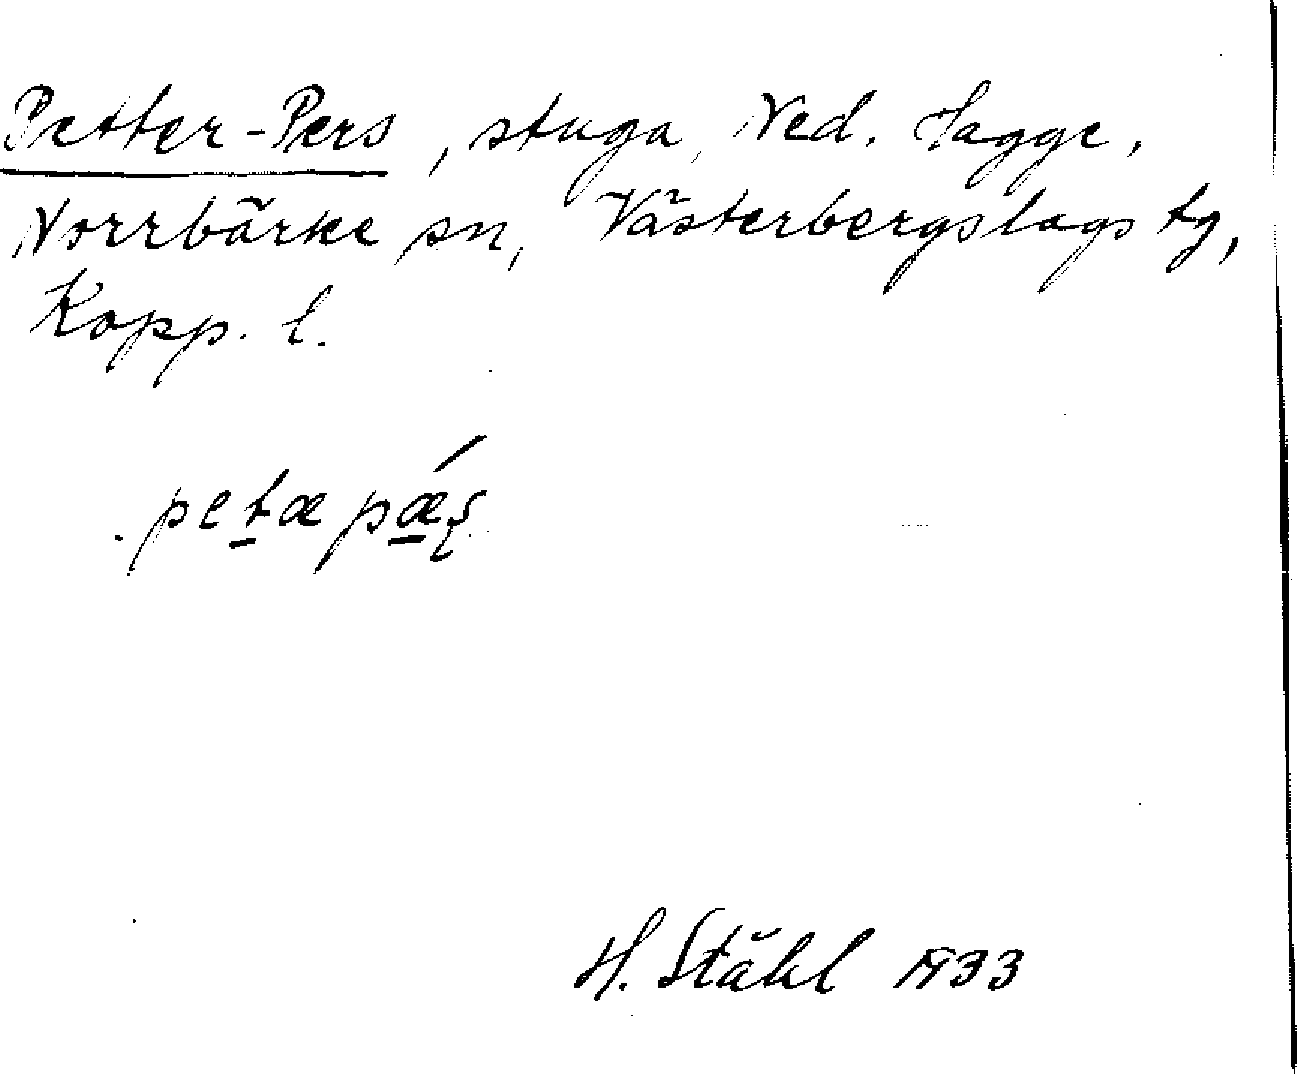 Petter-Pers, stuga, Ned. Hagge,
Norrbärke sn, Västerbergslags tg,
Kopp. l.
petæ pǽʂ
H. Ståhl 1933